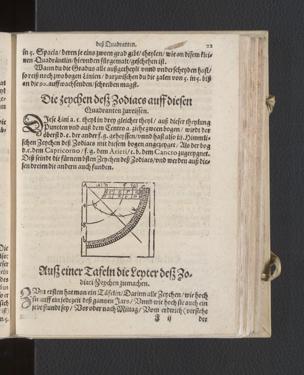 deß Quadranten. 22
in 5. Spacia/ deren je eins zween grad gibt/ theylen/ wie an disem kleinen
Quadräntlin/ hierunden fürgemalt/ geschehen ist.
Wann du die Gradus alle außgetheylt vnnd vnderscheyden hast/
so reiß noch zwo bogen Linien/ darzwischen du die zalen von 5. in 5. biß
an die 90. auffwachsenden/ schreiben magst.
Die zeychen deß Zodiacs auff diesen
Quadranten zureissen.
Dise Lini a. c. theyl in drey gleicher theyl/ auß dieser theylung
Puncten vnd auß dem Centro a. ziehe zween bogen/ wirdt der
überst d. e. der ander f. g. geheyssen/
schen Zeychen deß Zodiacs mit diesem bogen angezeyget/ Als der bog
d. e. dem Capricorno/ f. g. dem Arieti/ c. b. dem Cancro zugeeygnet.
Diß seindt die fürnembsten Zeychen deß Zodiacs/ vnd werden auß diesen
dreien die andern auch funden.
Auß einer Tafeln die Leyter deß Zodiaci
Zeychen zumachen.
Von ersten hat man ein Täfelin/ Darinn alle Zeychen/ wie hoch
sie auff ein jede zeit deß gantzen Jars/ Vnnd wie hoch sie auch ein
jede stund sey/ Vor oder nach Mittag/ Vom erdtrich (verstehe
F ij der